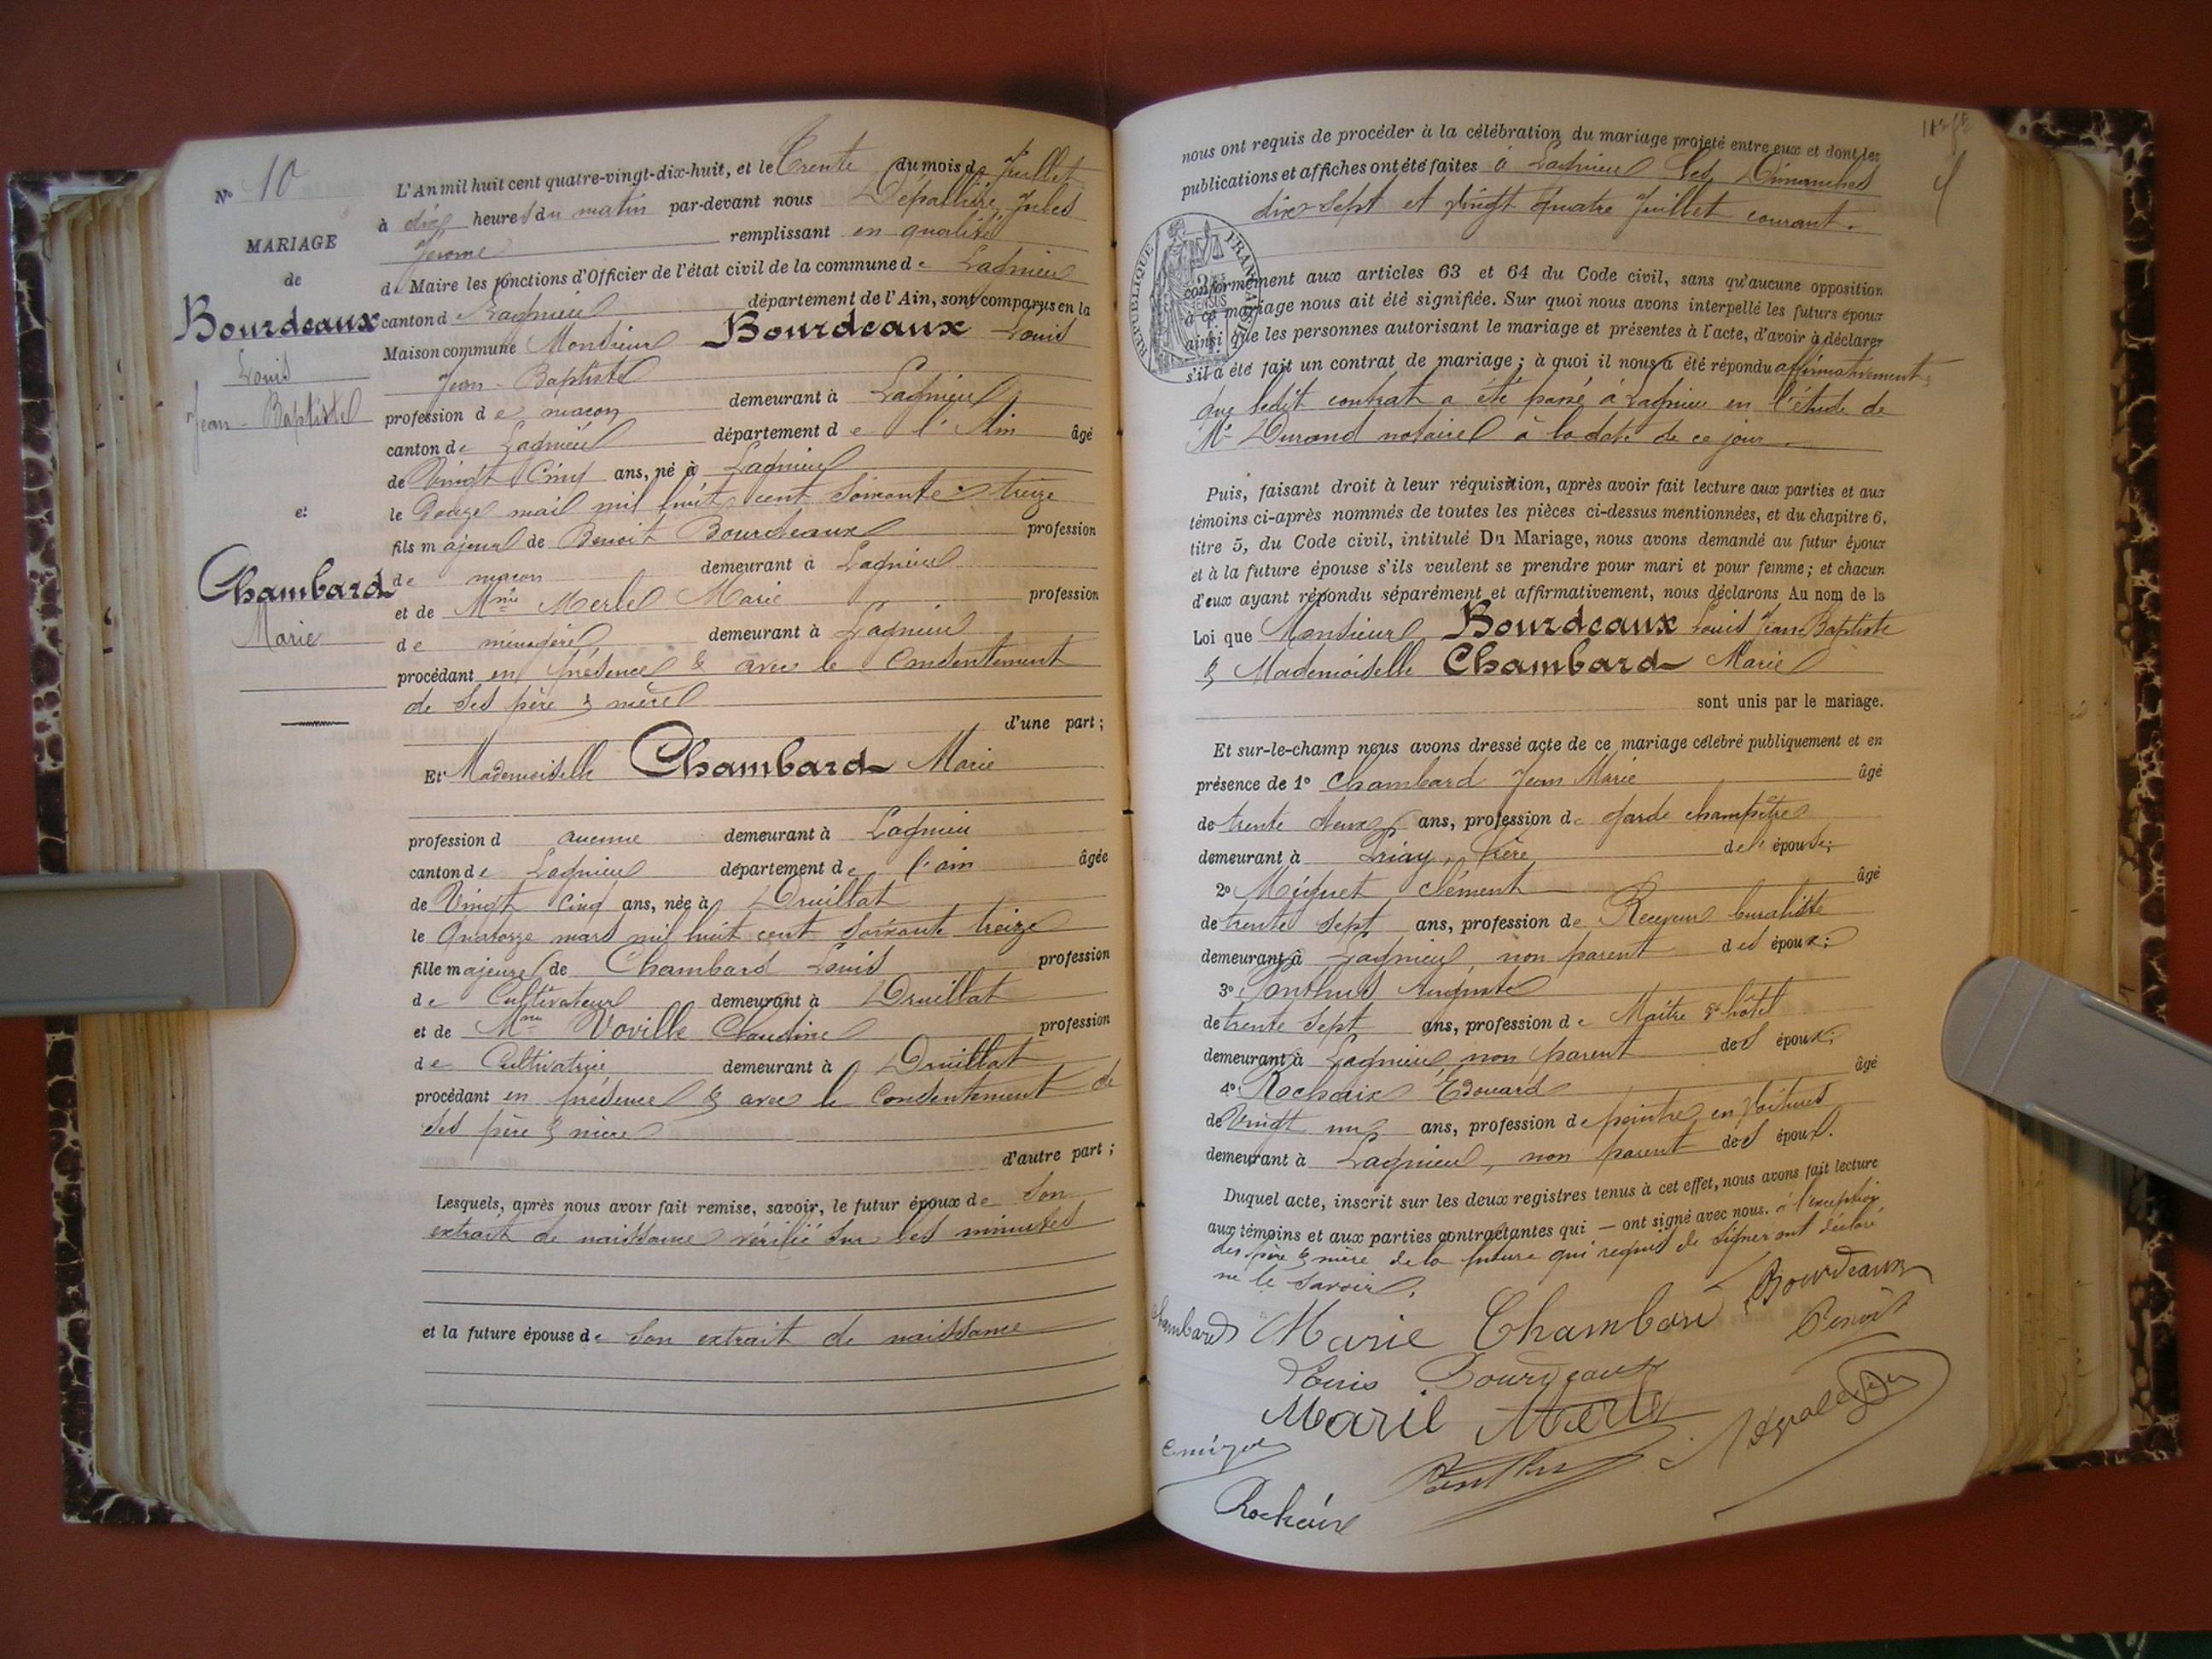 N° 10
MARIAGE
de
Bourdeaux
Louis
Jean-Baptiste
et
Chambard
Marie
L'An mil huit cent quatre-vingt-dix-huit, et le Trente du mois de Juillet
à dix heures du matin par-devant nous Depallière Jules
Jérome remplissant en qualité
de Maire les fonctions d'Officier de l'état civil de la commune de Lagnieu
canton d Lagnieu département de l'Ain, sont comparus en la
Maison commune Monsieur Bourdeaux Louis
Jean-Baptiste
profession de maçon demeurant à Lagnieu
canton de Lagnieu département de l'Ain âgé
de Vingt Cinq ans, né à Lagnieu
le Douze mai mil huit cent soixante-treize
fils majeur de Benoit Bourdeaux profession
de maçon demeurant à Lagnieu
et de Mme Merle Marie profession
de ménagère demeurant à Lagnieu
procédant en présence & avec le Consentement
de ses père & mère
d'une part;
Et Mademoiselle Chambard Marie
profession d aucune demeurant à Lagnieu
canton de Lagnieu département de l'ain âgée
de Vingt cinq ans, née à Druillat
le Quatorze mars mil huit cent soixante treize
fille majeure de Chambard Louis profession
de Cultivateur demeurant à Druillat
et de Mme Voville Claudine profession
de Cultivatrice demeurant à Druillat
procédant en présence & avec le Consentement de
ses père & mère
d'autre part;
Lesquels, après nous avoir fait remise, savoir, le futur époux de son
extrait de naissance vérifié sur les minutes
et la future épouse de son extrait de naissance
nous ont requis de procéder à la célébration du mariage projeté entre eux et dont les
publications et affiches ont été faites à Lagnieu les Dimanches
dix-sept et vingt quatre Juillet courant.
RÉPUBLIQUE FRANÇAISE
conformément aux articles 63 et 64 du Code civil, sans qu'aucune opposition
à ce mariage nous ait été signifiée. Sur quoi nous avons interpellé les futurs époux
ainsi que les personnes autorisant le mariage et présentes à l'acte, d'avoir à déclarer
s'il a été fait un contrat de mariage; à quoi il nous a été répondu affirmativement
que ledit contrat a été passé à Lagnieu en l'étude de
Me Durand notaire à la date de ce jour.
Puis, faisant droit à leur réquisition, après avoir fait lecture aux parties et aux
témoins ci-après nommés de toutes les pièces ci-dessus mentionnées, et du chapitre 6,
titre 5, du Code civil, intitulé Du Mariage, nous avons demandé au futur époux
et à la future épouse s'ils veulent se prendre pour mari et pour femme; et chacun
d'eux ayant répondu séparément et affirmativement, nous déclarons Au nom de la
Loi que Monsieur Bourdeaux Louis Jean Baptiste
& Mademoiselle Chambard Marie
sont unis par le mariage.
Et sur-le-champ nous avons dressé acte de ce mariage célébré publiquement et en
présence de 1° Chambard Jean Marie âgé
de trente deux ans, profession de garde champêtre
demeurant à Priay, frère de l'épouse;
2° Miguet Clément âgé
de trente sept ans, profession de Receveur buraliste
demeurant à Lagnieu, non parent des époux;
3° Ponthus Auguste
de trente sept ans, profession de Maître d'hôtel
demeurant à Lagnieu, non parent des époux;
4° Rochaix Edouard âgé
de Vingt un ans, profession de peintre en voitures
demeurant à Lagnieu, non parent des époux.
Duquel acte, inscrit sur les deux registres tenus à cet effet, nous avons fait lecture
aux témoins et aux parties contractantes qui — ont signé avec nous. à l'exception
des père & mère de la future qui requis de signer ont déclaré
ne le savoir.
Chambard Marie Chambard Bourdeaux
Benoit
Louis Bourdeaux
Marie Merle
Ponthus
Rochaix